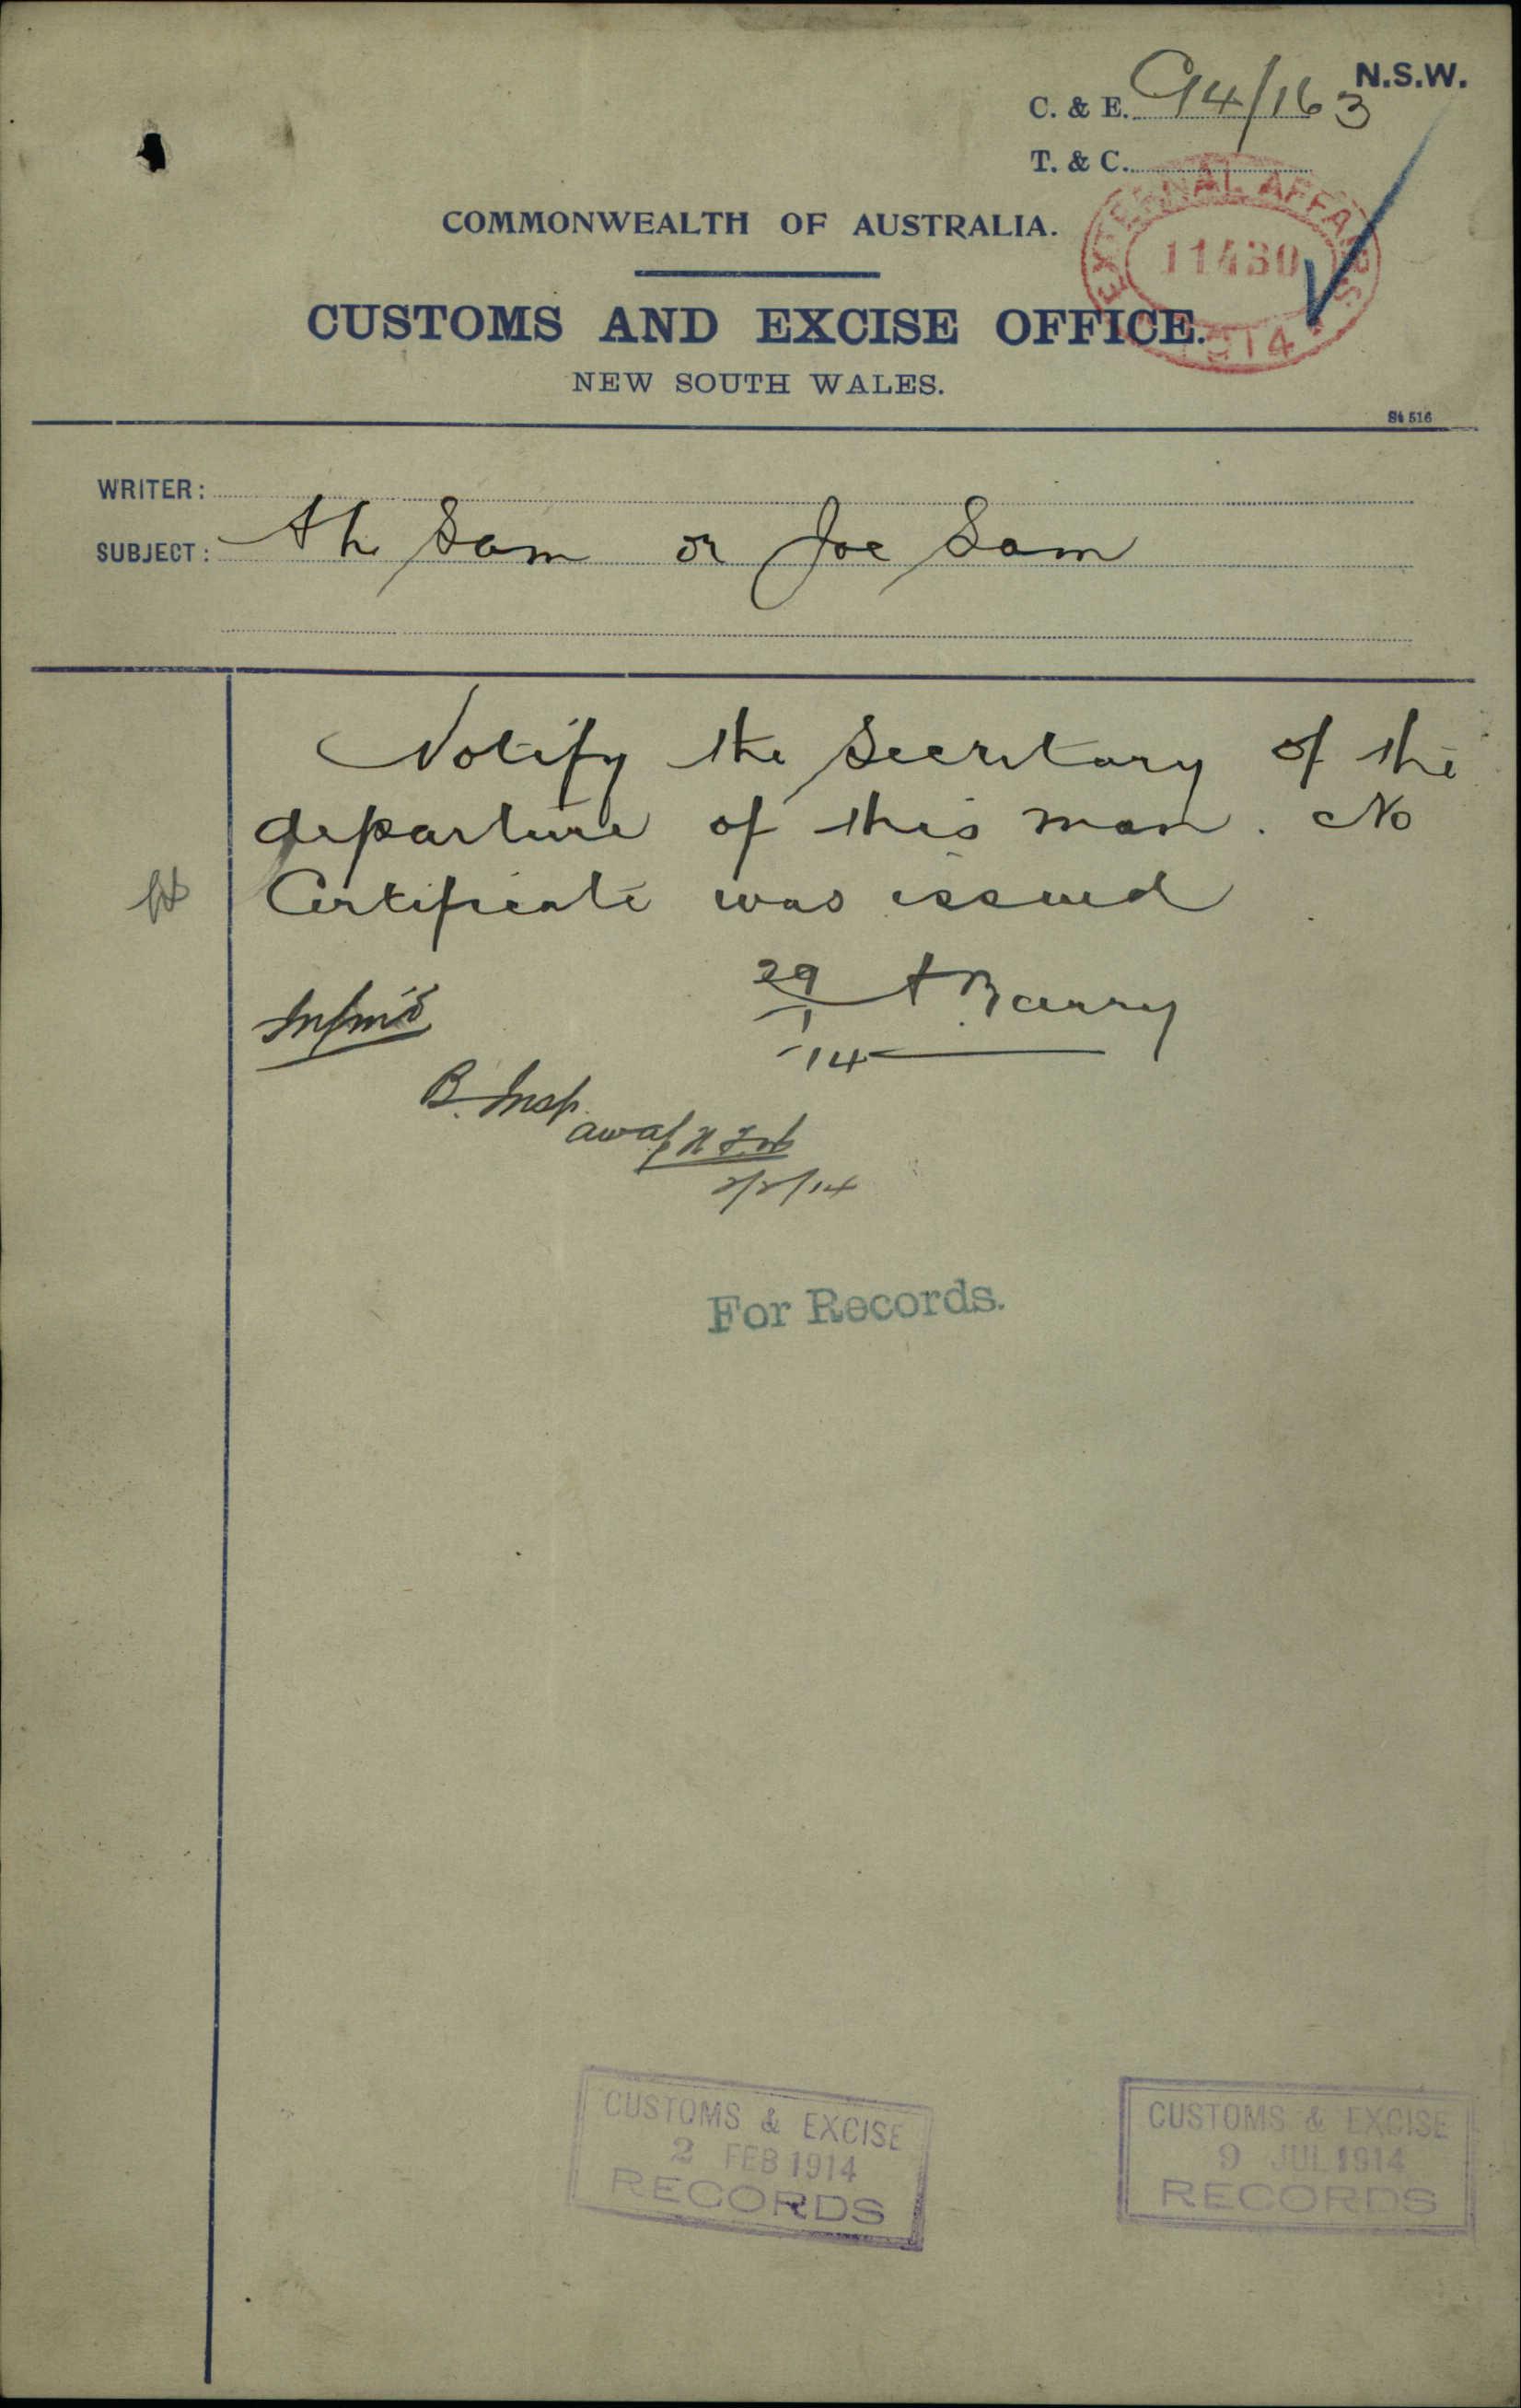 N.S.W.
C. & E. C14/163
T. & C.
EXTERNAL AFFAIRS
11430
1914
COMMONWEALTH OF AUSTRALIA.
CUSTOMS AND EXCISE OFFICE.
NEW SOUTH WALES.
St 516
WRITER:
SUBJECT: Ah Sam or Joe Sam
Notify the Secretary of the
departure of this man. No
Certificate was issued
29 A Barry
1
14
B. Insp.
2/2/14
For Records.
CUSTOMS & EXCISE
2 FEB 1914
RECORDS
CUSTOMS & EXCISE
9 JUL 1914
RECORDS